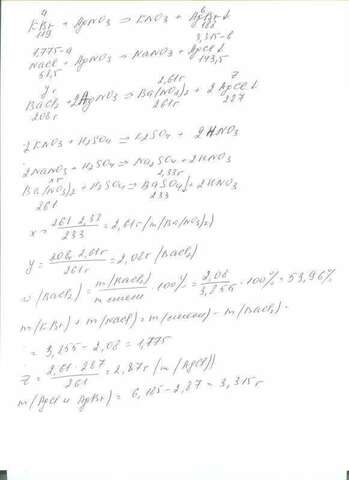 a b
KBr + AgNO3 → KNO3 + AgBr↓
119 188
1,775-a 3,315-b
NaCl + AgNO3 → NaNO3 + AgCl↓
58,5 143,5
y г 2,61г z
BaCl2 + 2AgNO3 → Ba(NO3)2 + 2AgCl↓
208г 261г 287
2KNO3 + H2SO4 → K2SO4 + 2HNO3
2NaNO3 + H2SO4 → Na2SO4 + 2HNO3
x г 2,33г
Ba(NO3)2 + H2SO4 → BaSO4↓ + 2HNO3
261 233
x = 261·2,33 / 233 = 2,61г (m(Ba(NO3)2)
y = 208·2,61г / 261г = 2,08г (BaCl2)
w(BaCl2) = m(BaCl2) / m смеси · 100% = 2,08 / 3,855 · 100% = 53,96%
m(KBr) + m(NaCl) = m(смеси) - m(BaCl2) =
= 3,855 - 2,08 = 1,775
z = 2,61·287 / 261 = 2,87г (m(AgCl))
m(AgCl и AgBr) = 6,185 - 2,87 = 3,315г